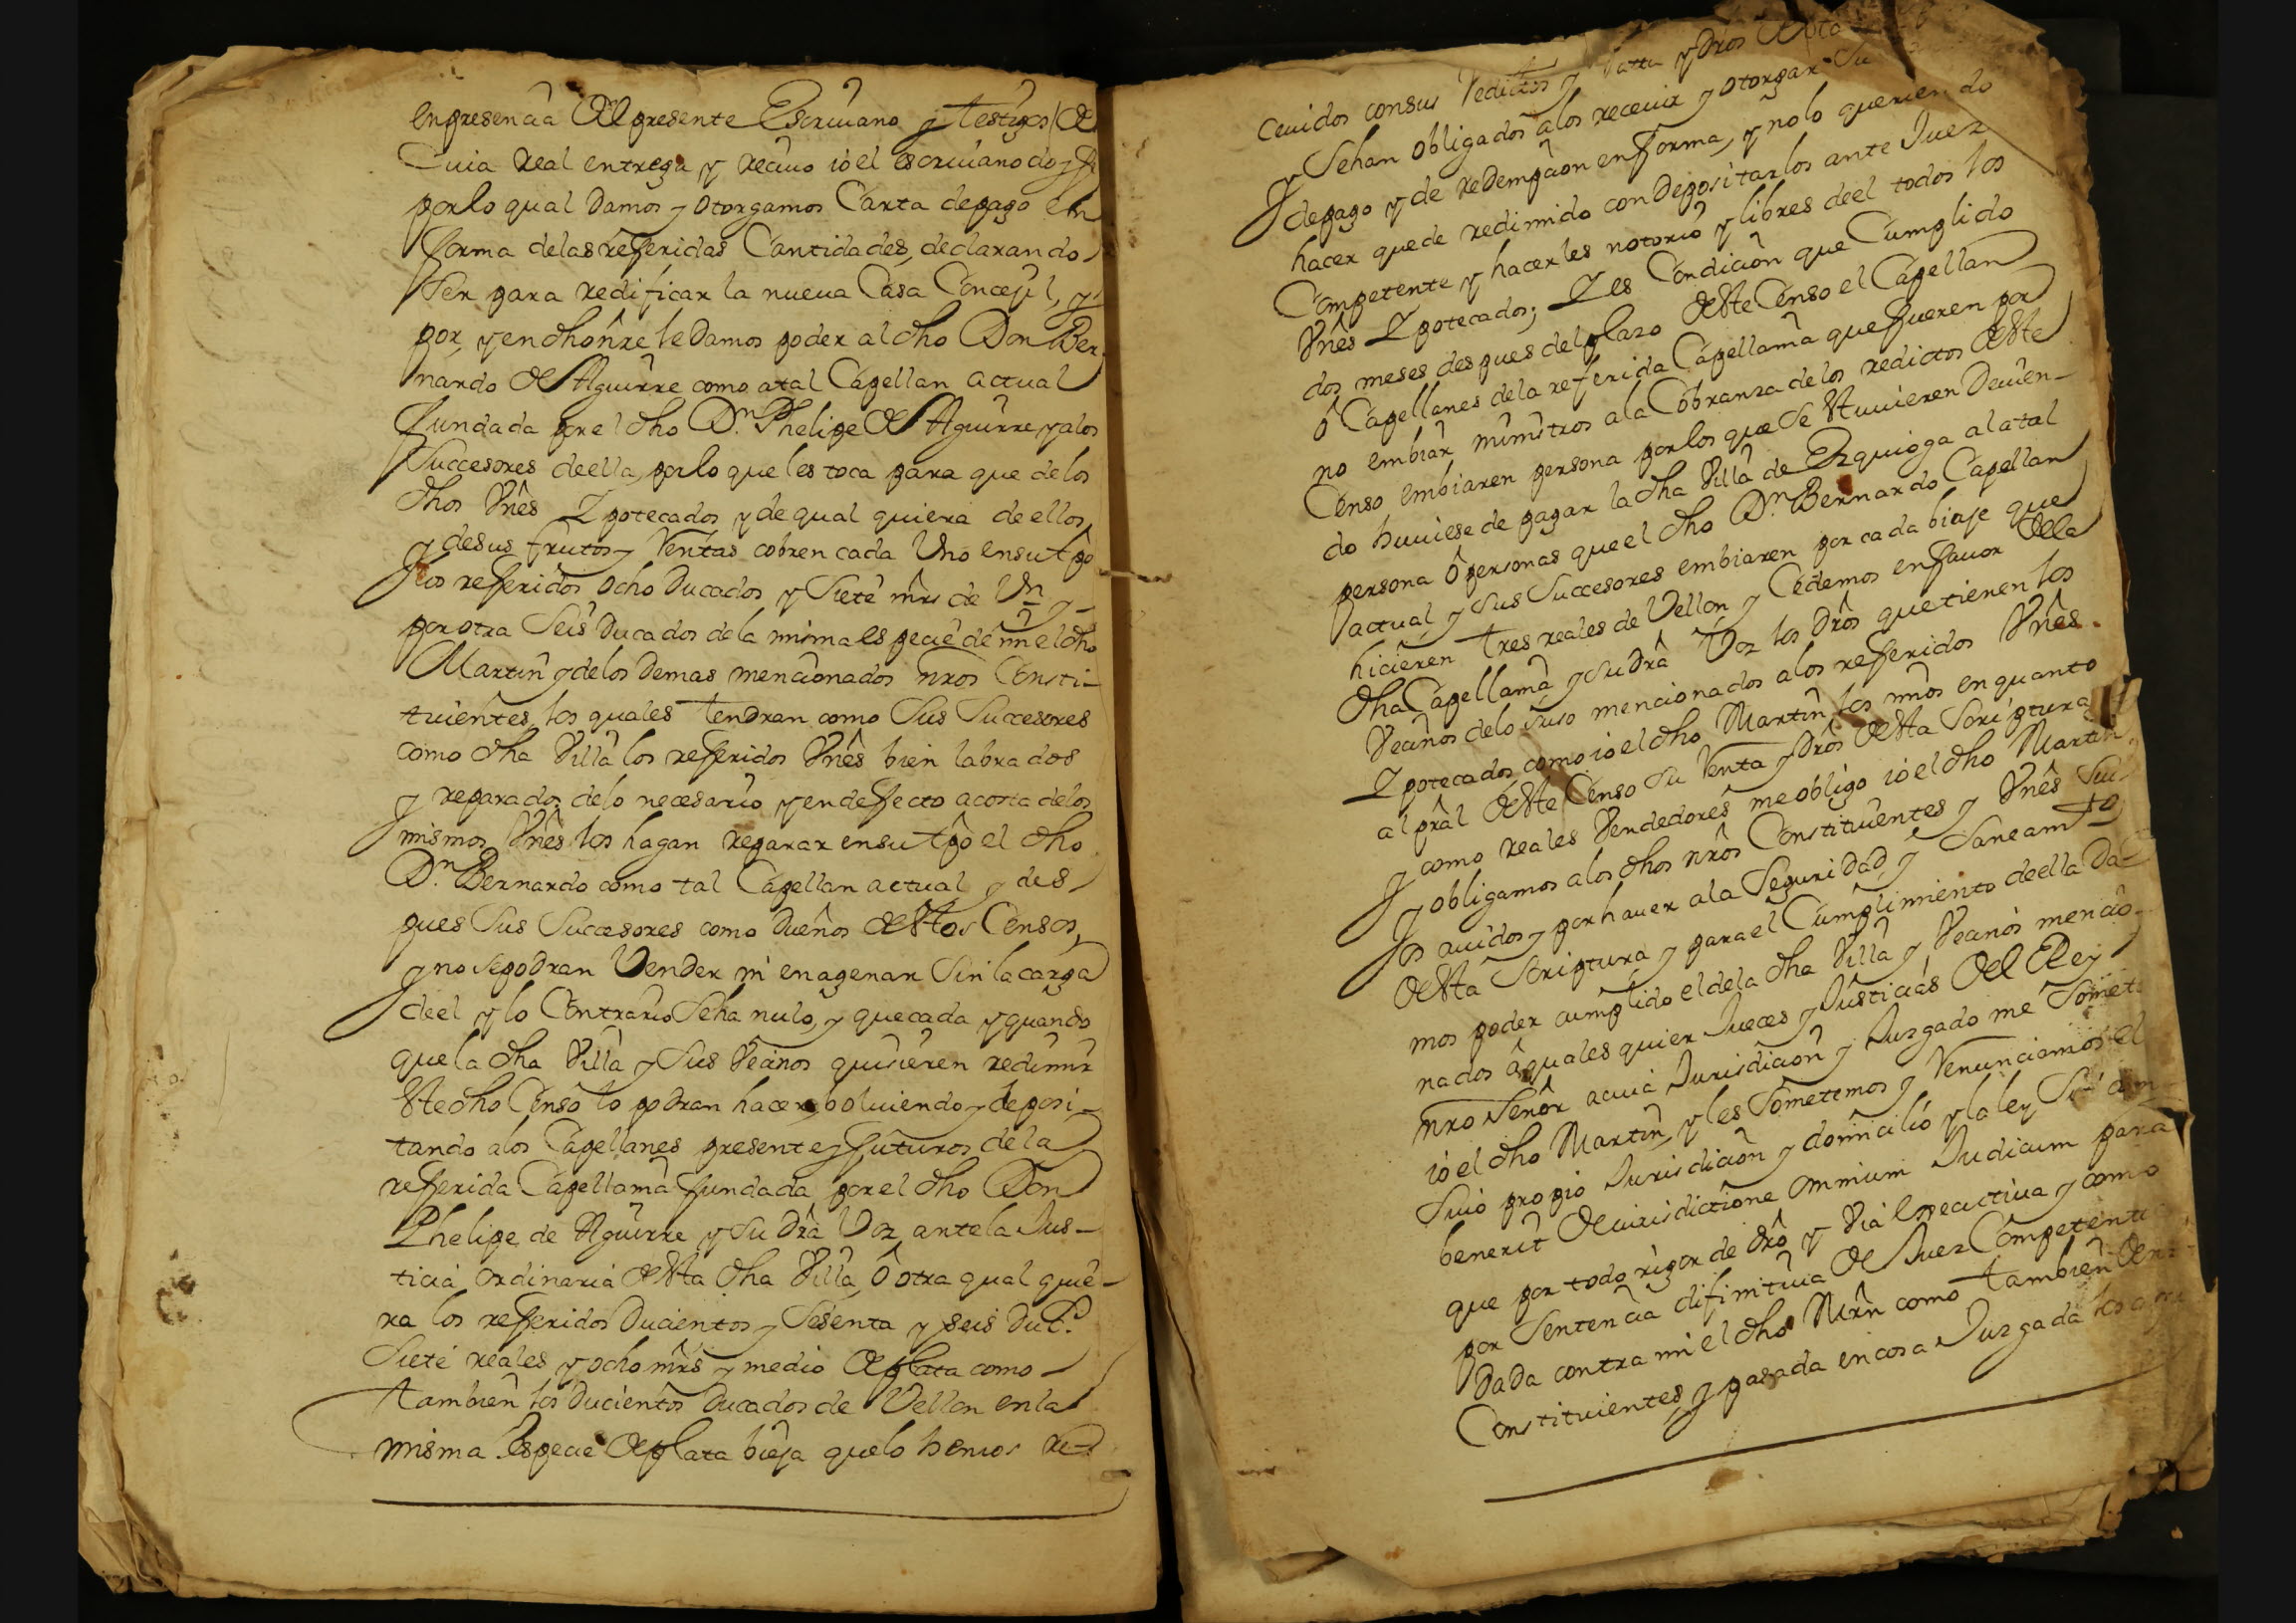 en presencia del presente Escriuano y testigos, de
Cuia real entrega y reciuo io el escriuano doy fe
por lo qual damos y otorgamos Carta de pago en
forma de las referidas Cantidades, declarando
ser para redificar la nueua Casa Concejil, y
por, y en dho nre le damos poder al dho Don Ber
nardo de Aguirre como a tal Capellan actual
fundada por el dho Dn. Phelipe de Aguirre, y a los
Successores de ella, por lo que les toca para que de los
dhos Vnês Ypotecados y de qual quiera de ellos,
y de sus frutos y Rentas cobren cada Uno en su tpô
los referidos ocho Ducados y Siete mrs de Vn y
por otra Seis Ducados de la misma especie de mi el dho
Martin y de los demas mencionados nros Consti-
tuientes, los quales tendran como Sus Successores
como dha Villa los referidos Vnês bien labrados
y reparados de lo necesario y en defecto a costa de los
mismos Vnês los hagan reparar en su tpô el dho
Dn. Bernardo como tal Capellan actual y des
pues Sus Successores como Dueños de estos Censos,
y no se podran Vender ni enagenar Sin la carga
de el y lo Contrario Seha nulo, y que cada y quando
que la dha Villa y Sus Vecinos quisieren redimir
este dho Censo lo podran hacer, bolviendo y deposi-
tando a los Capellanes presente y futuros de la
referida Capellania fundada por el dho Don
Phelipe de Aguirre y Su dra Voz ante la Jus-
ticia ordinaria de esta dha Villa, ô otra qual quie-
ra los referidos Ducientos y Sesenta y seis Duc.s
Siete reales y ocho mrs y medio de plata como
tambien los Ducientos Ducados de Vellon en la
misma especie de plata bieja que lo hemos re-
ceuidos con sus redictos y
y Sehan obligados a los receuir y otorgar Su
de pago y de redempcion en forma, y no lo queriendo
hacer quede redimido con Depositarlos ante Juez
Competente y hacerles notorio y libres de el todos los
Vnês Ypotecados; Y es Condicion que Cumplido
dos meses despues del plazo de este Censo el Capellan
ô Capellanes de la referida Capellania que fueren por
no embiar ministros a la Cobranza de los redictos de este
Censo embiaren persona por los que Se estuuieren Deuen-
do huuiese de pagar la dha Villa de Ezquioga a la tal
persona ô personas que el dho Dn. Bernardo Capellan
actual y Sus Successores embiaren por cada biaje que
hicieren tres reales de Vellon y Cedemos en fauor de la
dha Capellania y su dra Voz los drôs que tienen los
Vecinos de lo suso mencionados a los referidos Vnês
Ypotecados, como io el dho Martin los mios en quanto
al prâl de este Censo Su Renta y drôs de esta Scriptura,
y como reales Vendedores me obligo io el dho Martin,
y obligamos a los dhos nrôs Constituentes y Vnês Su-
ios auidos y por hauer a la Seguridad y Saneamto
de esta Scriptura, y para el Cumplimiento de ella Da-
mos poder cumplido el de la dha Villa y Vecinos mencio-
nados â quales quier Jueces y Justicias del Rey
nro Señor a cuia Jurisdicion y Juzgado me Someto
io el dho Martin, y les Sometemos y Renunciamos el
Suio propio Jurisdicion y domicilio y la ley Sit con
benerit de iurisdictione omnium Judicum para
que por todo rigor de drô y Via executiua y como
por Sentencia difinitiua de Juez Competente
Dada contra mi el dho Mrn como tambien
Constituientes, y pasada en cosa Juzgada